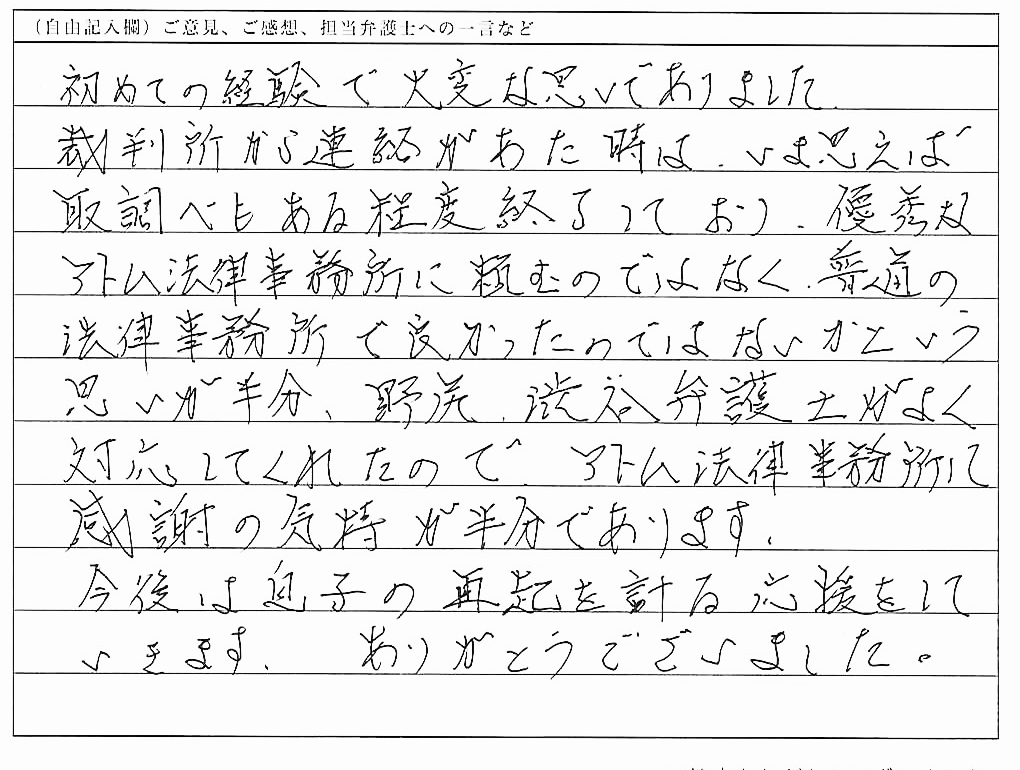 （自由記入欄）ご意見、ご感想、担当弁護士への一言など
初めての経験で大変な思いでありました.
裁判所から連絡があた時は、いま思えば
取調べもある程度終了しており、優秀な
アトム法律事務所に頼むのではなく、普通の
法律事務所で良かったのではないかという
思いが半分、野尻、渋谷弁護士がよく
対応してくれたので、アトム法律事務所に
感謝の気持が半分であります.
今後は息子の再起を計る応援をして
いきます. ありがとうございました。